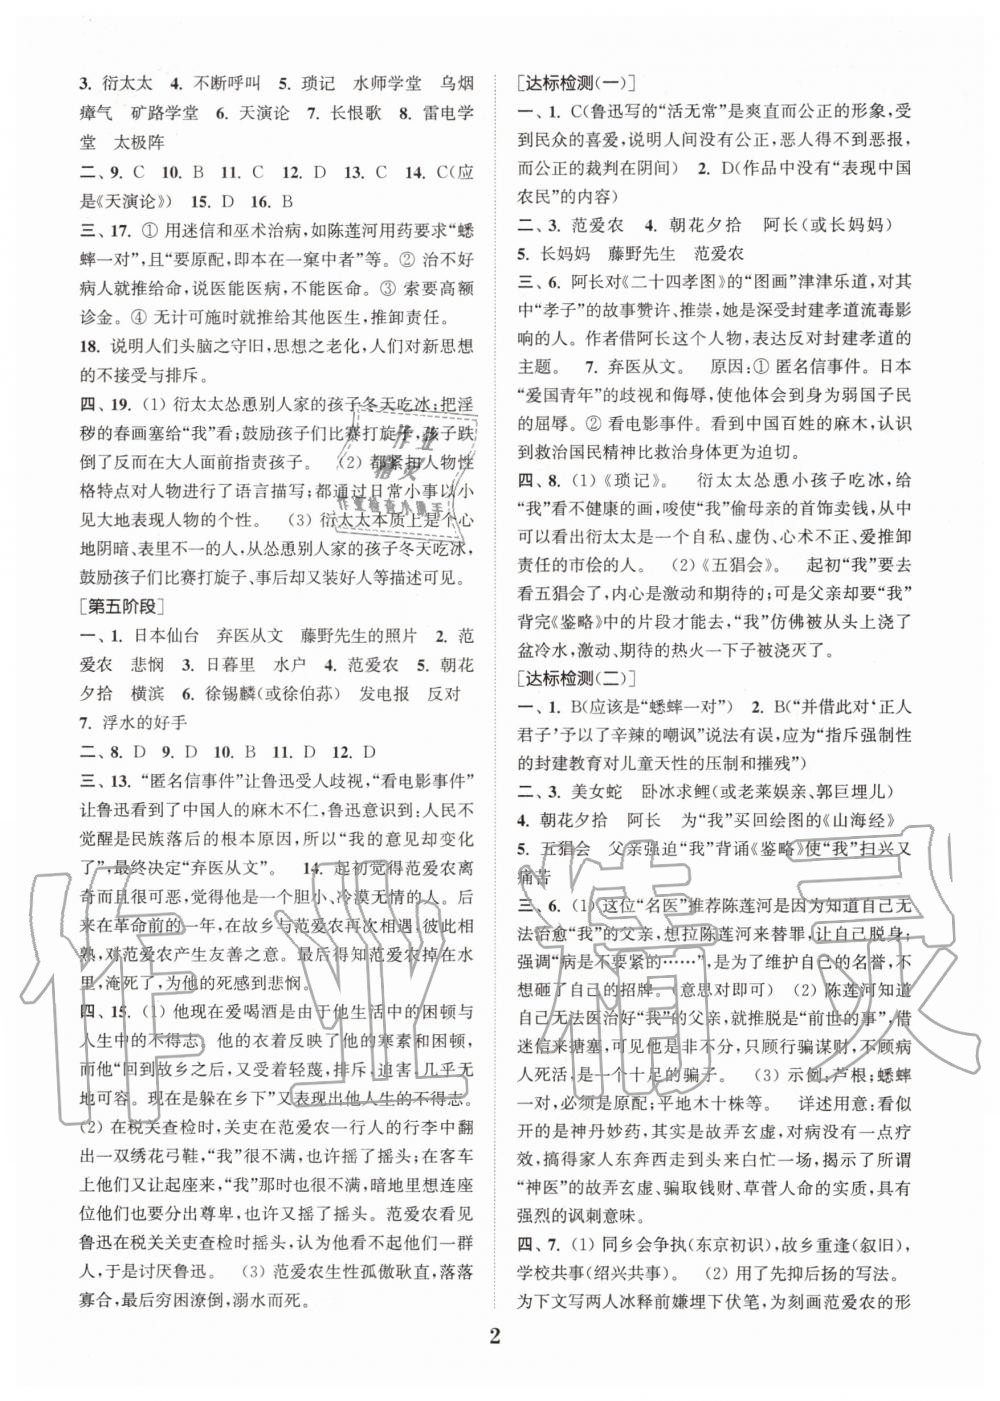 3. 衍太太　4. 不断呼叫　5. 琐记　水师学堂　乌烟
瘴气　矿路学堂　6. 天演论　7. 长恨歌　8. 雷电学
堂　太极阵
二、9. C　10. B　11. C　12. D　13. C　14. C(应
是《天演论》)　15. D　16. B
三、17. ① 用迷信和巫术治病,如陈莲河用药要求“蟋
蟀一对”,且“要原配,即本在一窠中者”等。② 治不好
病人就推给命,说医能医病,不能医命。③ 索要高额
诊金。④ 无计可施时就推给其他医生,推卸责任。
18. 说明人们头脑之守旧,思想之老化,人们对新思想
的不接受与排斥。
四、19. (1) 衍太太怂恿别人家的孩子冬天吃冰;把淫
秽的春画塞给“我”看;鼓励孩子们比赛打旋子,孩子跌
倒了反而在大人面前指责孩子。　(2) 都紧扣人物性
格特点对人物进行了语言描写;都通过日常小事以小
见大地表现人物的个性。　(3) 衍太太本质上是个心
地阴暗、表里不一的人,从怂恿别人家的孩子冬天吃冰,
鼓励孩子们比赛打旋子、事后却又装等描述可见。
[第五阶段]
一、1. 日本仙台　弃医从文　藤野先生的照片　2. 范
爱农　悲悯　3. 日暮里　水户　4. 范爱农　5. 朝花
夕拾　横滨　6. 徐锡麟(或徐伯荪)　发电报　反对
7. 浮水的好手
二、8. D　9. D　10. B　11. D　12. D
三、13. “匿名信事件”让鲁迅受人歧视,“看电影事件”
让鲁迅看到了中国人的麻木不仁,鲁迅意识到:人民不
觉醒是民族落后的根本原因,所以“我的意见却变化
了”,最终决定“弃医从文”。　14. 起初觉得范爱农离
奇而且很可恶,觉得他是一个胆小、冷漠无情的人。后
来在革命前的一年,在故乡与范爱农再次相遇,彼此相
熟,对范爱农产生友善之意。最后得知范爱农掉在水
里,淹死了,为他的死感到悲悯。
四、15. (1) 他现在爱喝酒是由于他生活中的困顿与
人生中的不得志。他的衣着反映了他的寒素和困顿,
而他“回到故乡之后,又受着轻蔑,排斥,迫害,几乎无
地可容。现在是躲在乡下”又表现出他人生的不得志。
(2) 在税关查检时,关吏在范爱农一行人的行李中翻
出一双绣花弓鞋,“我”很不满,也许摇了摇头;在客车
上他们又让起座来,“我”那时也很不满,暗地里想连座
位他们也要分出尊卑,也许又摇了摇头。范爱农看见
鲁迅在税关关吏查检时摇头,认为他看不起他们一群
人,于是讨厌鲁迅。　(3) 范爱农生性孤傲耿直,落落
寡合,最后穷困潦倒,溺水而死。
[达标检测(一)]
一、1. C(鲁迅写的“活无常”是爽直而公正的形象,受
到民众的喜爱,说明人间没有公正,恶人得不到恶报,
而公正的裁判在阴间)　2. D(作品中没有“表现中国
农民”的内容)
二、3. 范爱农　4. 朝花夕拾　阿长(或长妈妈)
5. 长妈妈　藤野先生　范爱农
三、6. 阿长对《二十四孝图》的“图画”津津乐道,对其
中“孝子”的故事赞许、推崇,她是深受封建孝道流毒影
响的人。作者借阿长这个人物,表达反对封建孝道的
主题。　7. 弃医从文。　原因:① 匿名信事件。日本
“爱国青年”的歧视和侮辱,使他体会到身为弱国子民
的屈辱。② 看电影事件。看到中国百姓的麻木,认识
到救治国民精神比救治身体更为迫切。
四、8. (1)《琐记》。　衍太太怂恿小孩子吃冰,给
“我”看不健康的画,唆使“我”偷母亲的首饰卖钱,从中
可以看出衍太太是个自私、虚伪、心术不正、爱推卸
责任的市侩的人。　(2)《五猖会》。　“我”急切想要去
看五猖会了,内心是激动和期待的;可父亲却要“我”
背完《鉴略》中的片段才能去,“我”仿佛被从头浇了
盆冷水,激动、期待的热火一下子被浇灭了。
[达标检测(二)]
一、1. B(应该是“蟋蟀一对”)　2. B(“并借此对‘正人
君子’们给予了辛辣的嘲讽”说法有误,应为“指斥强制性
的封建教育对儿童天性的压制和摧残”)
二、3. 美女蛇　卧冰求鲤(或老莱娱亲、郭巨埋儿)
4. 朝花夕拾　阿长　为“我”买回绘图的《山海经》
5. 五猖会　父亲强迫“我”背诵《鉴略》使“我”扫兴又
痛苦
三、6. (1) 这位“名医”推荐陈莲河是因为知道自己无
法治愈“我”的父亲,想拉陈莲河来替罪,让自己脱身;
强调“病是不要紧的……”,是为了维护自己的名誉,不
想砸了自己的招牌。(意思对即可)　(2) 陈莲河知道
自己无法医治好“我”的父亲,就推说是“前世的事”,借
迷信来搪塞,可见他是非不分,只顾行骗谋财,不顾病
人死活,是一个十足的骗子。　(3) 示例:芦根;蟋蟀
一对,必须是原配;平地木十株等。　详述用意:看似
开的是神丹妙药,其实是故弄玄虚,对治病没有一点疗
效,搞得家人东奔西走最后白忙一场,揭示了所谓
“神医”的故弄玄虚、骗取钱财、草菅人命的实质,具有
强烈的讽刺意味。
四、7. (1) 同乡会争执(东京初识),故乡重逢(叙旧),
学校共事(绍兴共事)。　(2) 用了先抑后扬的写法。
为下文写两人冰释前嫌埋下伏笔,为刻画范爱农的形
2
作业
精灵
作业检查小助手
作业精灵